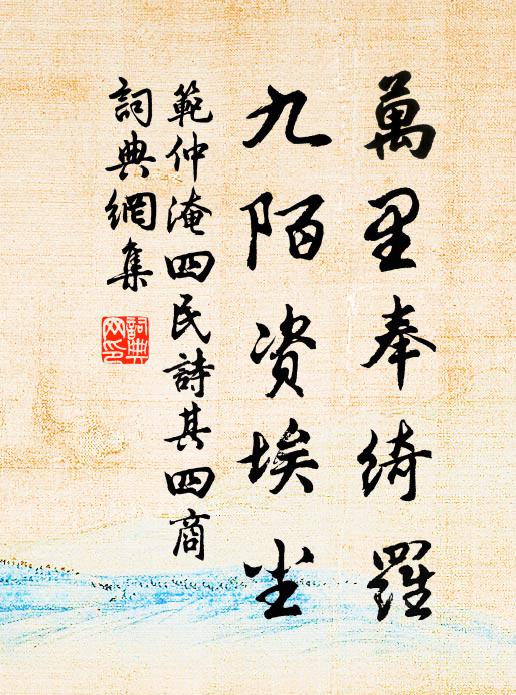 萬里奉綺羅
九陌资埃尘
範仲淹四民詩其四商
詞典網集
詞典网印